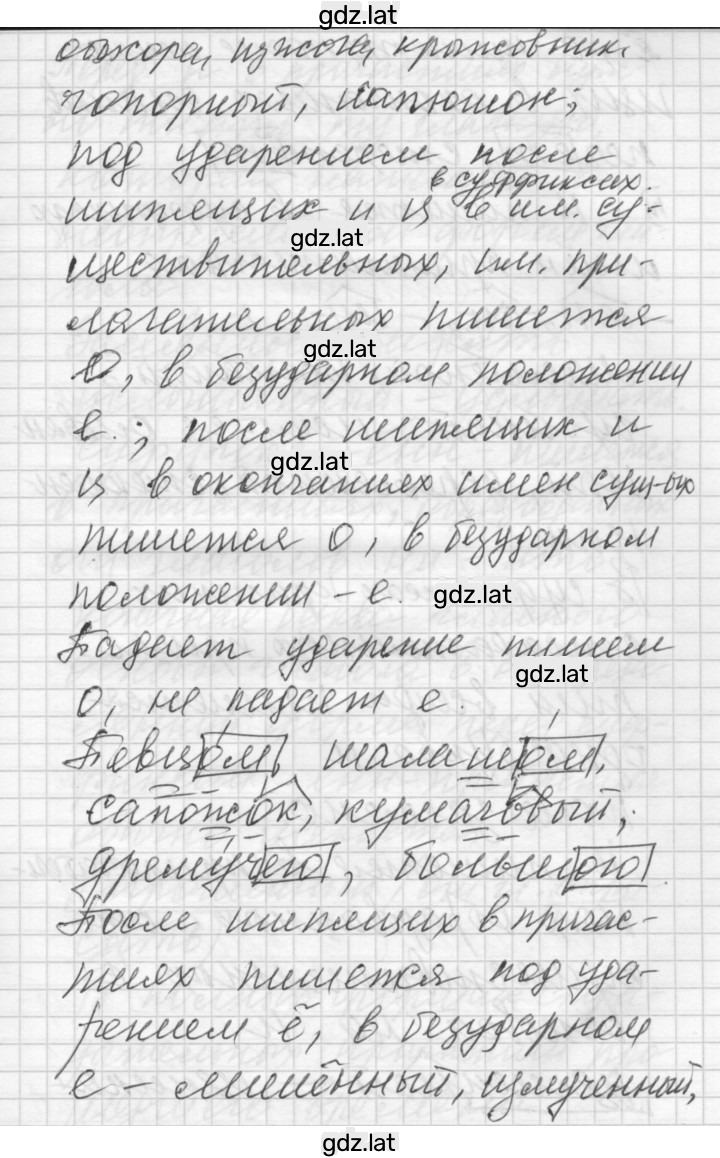 gdz.lat
обжора, изжога, крыжовник.
чопорный, капюшон;
под ударением после
в суффиксах.
шипящих и ц в им. су-
gdz.lat
ществительных, им. при-
лагательных пишется
gdz.lat
О, в безударном положении
е.; после шипящих и
gdz.lat
ц в окончаниях имен сущ-ых
пишется о, в безударном
положении – е.
gdz.lat
Падает ударение пишем
gdz.lat
О, не падает е.
Певцом, шалашом,
сапожок, кумачовый;
дремучего, большого
После шипящих в причас-
тиях пишется под уда-
рением ё, в безударном
е – лишённый, измученный,
gdz.lat